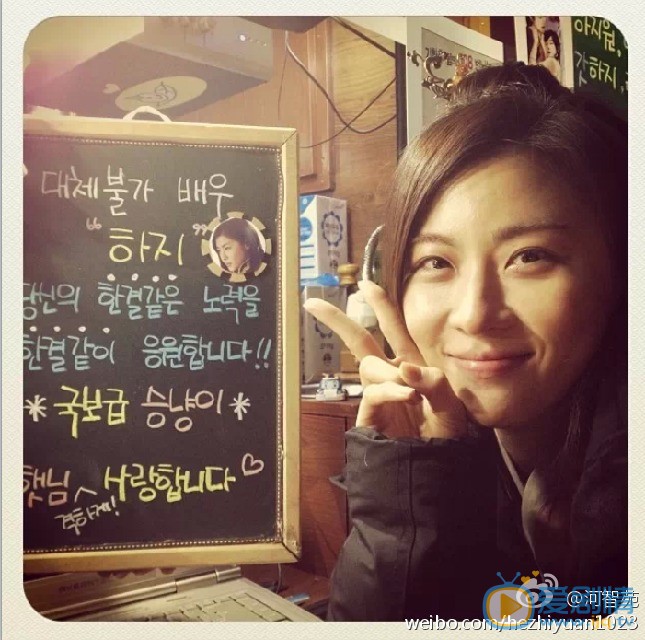 대체불가 배우
"하지"
당신의 한결같은 노력을
한결같이 응원합니다!!
*국보급 승냥이*
햇님 사랑합니다♡
격하게!
하지원,
갓하지,
爱剧情
@河智苑
weibo.com/hezhiyuan1023